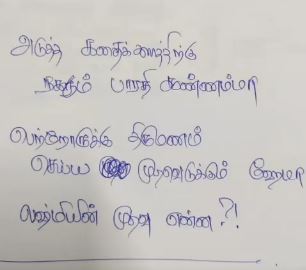 அடுத்த கதைக்களத்திற்கு
நகரும் பாரதி கண்ணம்மா
பெற்றோருக்கு திருமணம்
செய்ய முடிவெடுக்கும் ஹேமா
லஷ்மியின் முடிவு என்ன?!